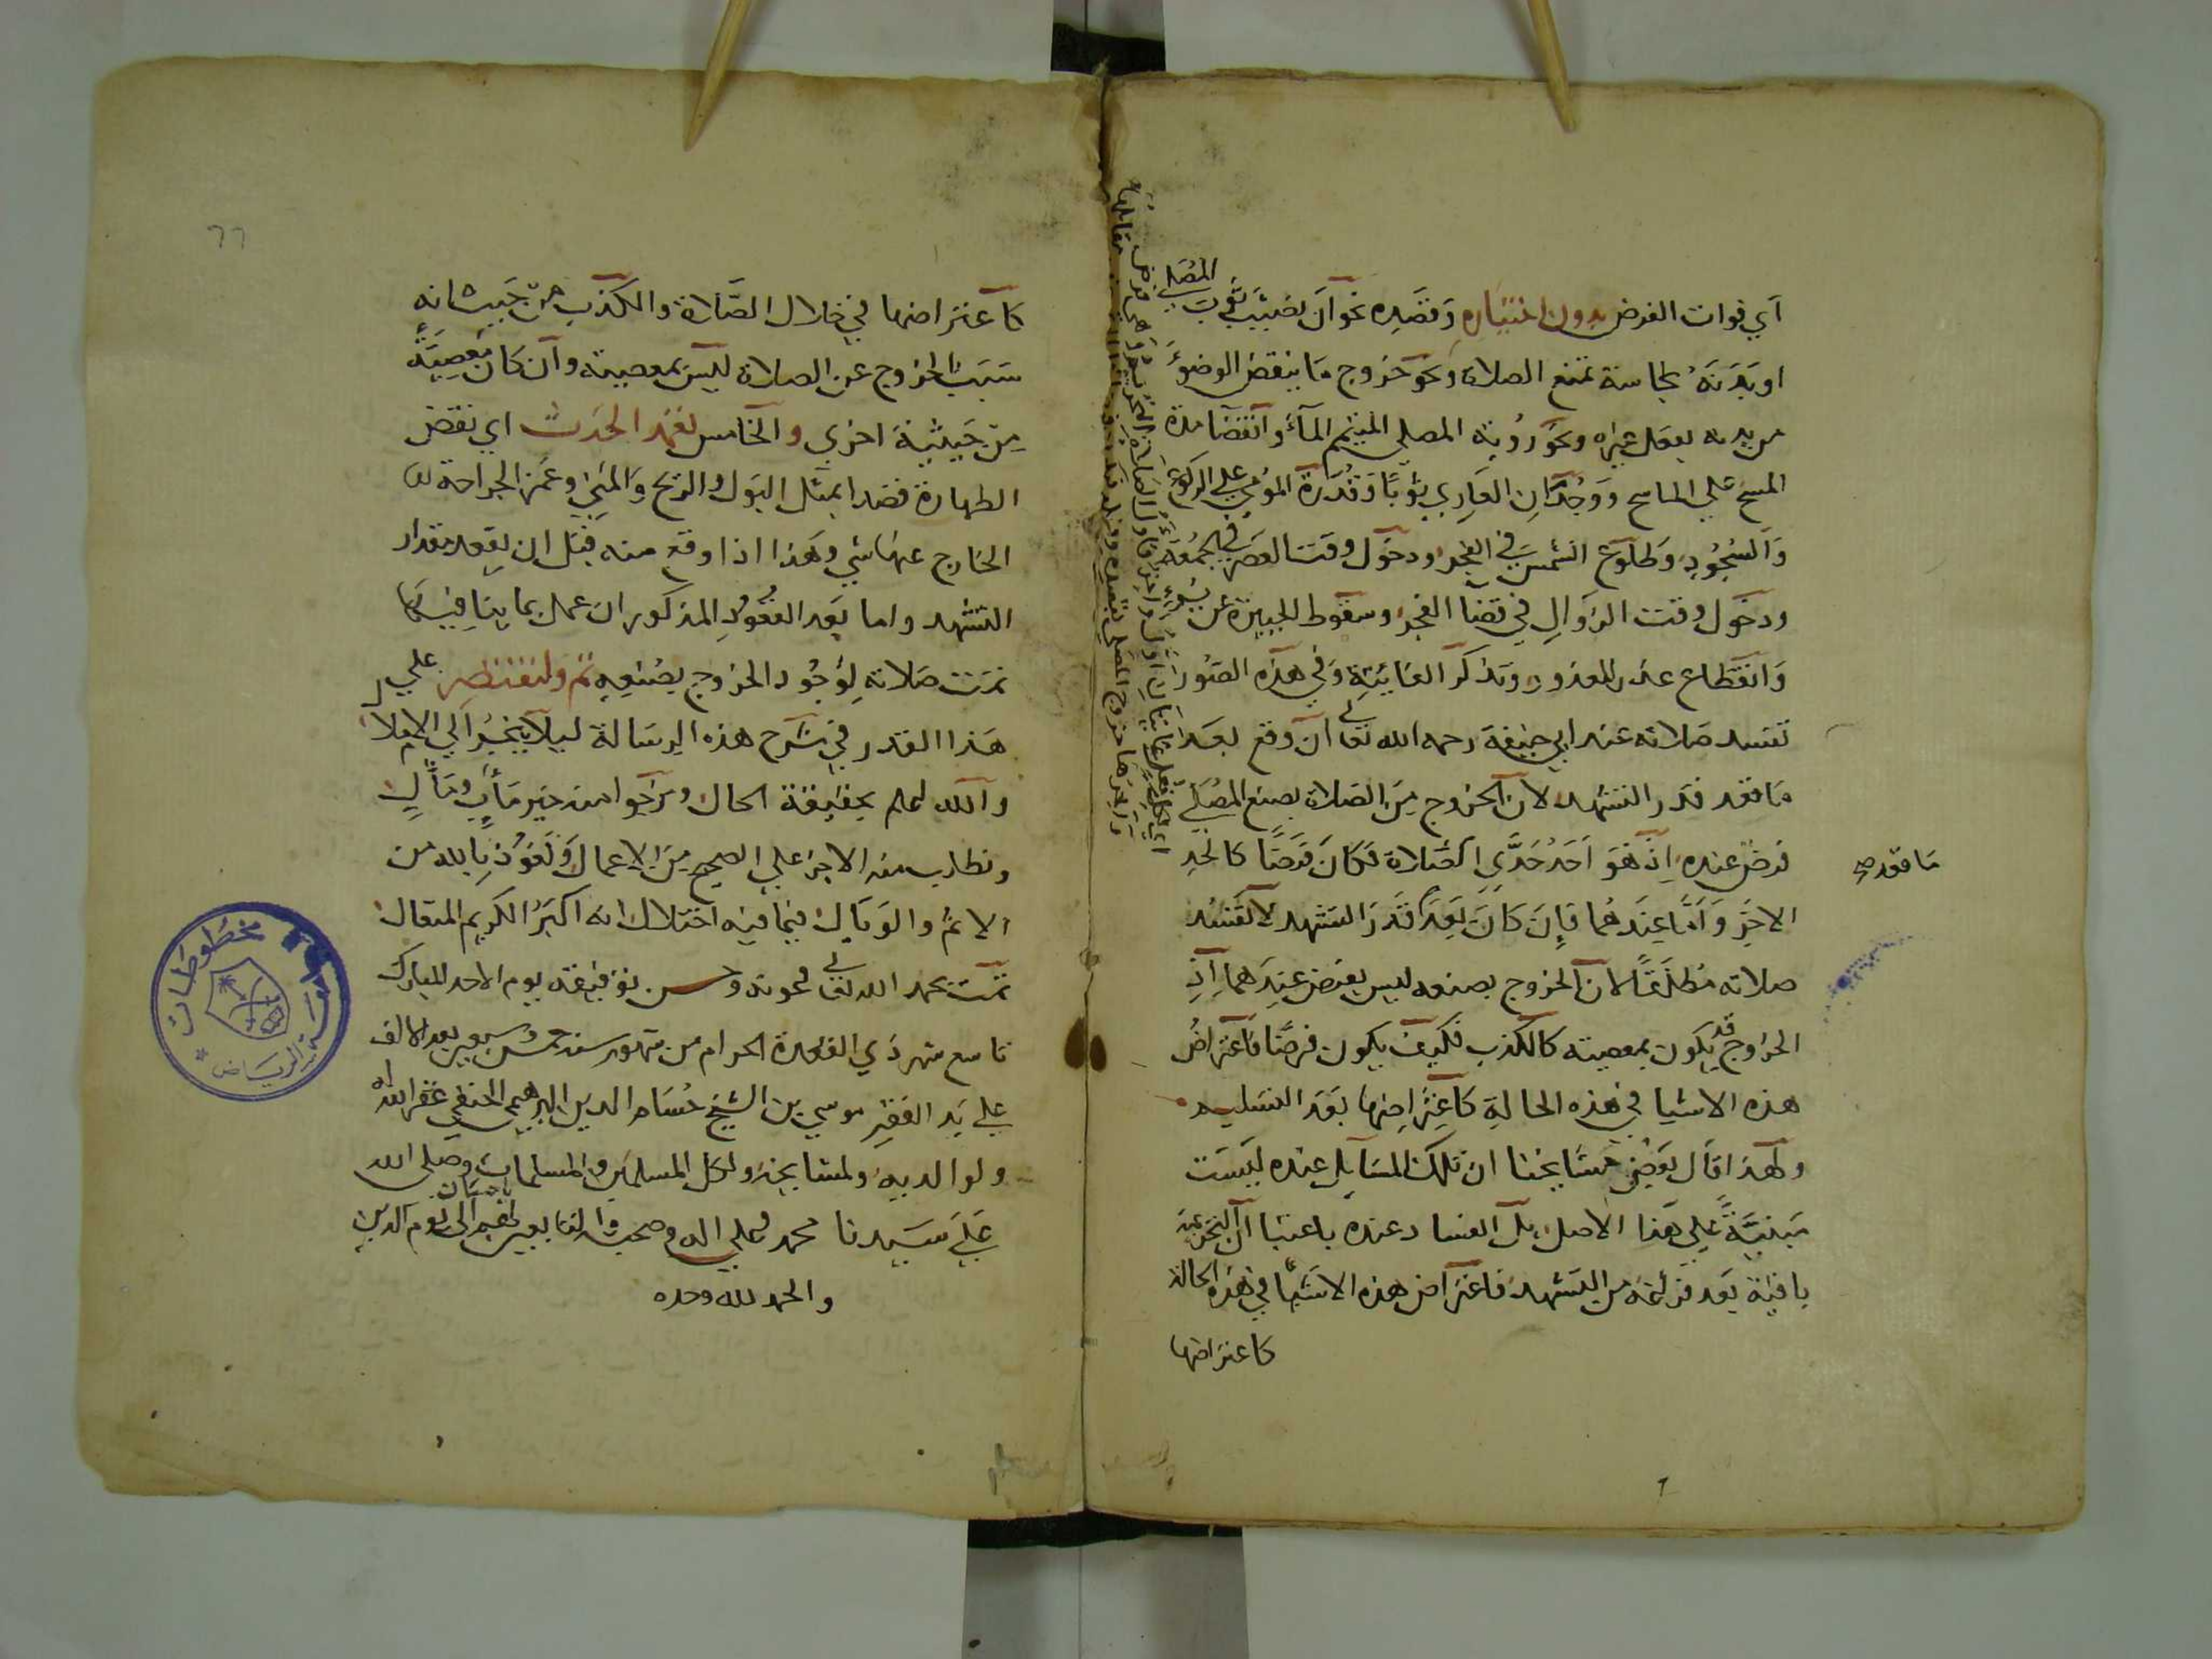 اي فوات الفرض بدون اختياره وقصده نحو ان يصيب ثوب المصلي
او بدنه نجاسة تمنع الصلاة ونحو خروج ما ينقض الوضوء
من بدنه بفعل غيره ونحو روية المصلي المتيمم المآء وانقضا مدة
المسح علي الماسح ووجدان العاري ثوبًا وقدرة المومي علي الركوع
والسجود وطلوع الشمس في الفجر ودخول وقت العصر في الجمعة
ودخول وقت الزوال في قضآ الفجر وسقوط الجبيرة عن بُرءٍ
وانقطاع عذر المعذور وتذكر الفائتة وفي هذه الصور
تفسد صلاته عند ابي حنيفة رحمه الله تعالي ان وقع بعد
ما قعد قدر التشهد لان الخروج من الصلاة بصنع المصلي
فرض عنده اذ هو احد حدَّي الصلاة فكان فرضًا كالحد
الاخر واما عندهما فان كان بعد قدر التشهد لا تفسد
صلاته مطلقًا لان الخروج بصنعه ليس بفرض عندهما اذ
الخروج قد يكون بمعصيته كالكذب فكيف يكون فرضًا فاعتراض
هذه الاشيا في هذه الحالة كاعتراضها بعد التسليم
ولهذا قال بعض مشايخنا ان تلك المسايل عنده ليست
مبنيةً علي هذا الاصل بل الفساد عنده باعتبار ان التحريمة
باقية بعد فراغه من التشهد فاعتراض هذه الاشيا في هذه الحالة
كاعتراضها
ما قعد صح
٦٦
كاعتراضها في خلال الصَّلاة والكذب من حيث انه
سبب الخروج عن الصلاة ليس بمعصيته وان كان معصيةً
من حيثية اخري والخامس تعمد الحدث اي نقض
الطهارة قصدا بمثل البول والريح والمني وغمز الجراحة
الخارج عنها شي وهذا اذا وقع منه قبل ان يقعد مقدار
التشهد واما بعد القعود المذكور ان عمل بما ينافيها
تمت صلاته لوجود الخروج بصنعه ثم ولنقتصر علي
هذا القدر في شرح هذه الرسالة ليلا ينجر الي الاملال
والله اعلم بحقيقة الحال ونرجوا منه خير مأب ومأل
ونطلب منه الاجر علي الصحيح من الاعمال ونعوذ بالله من
الاثم والوبال فيما فيه اختلال انه اكبر الكريم المتعال
تمت بحمد الله تعالي وعونه وحسن توفيقه يوم الاحد المبارك
تاسع شهر ذي القعدة الحرام من شهور سنة خمس وسبعين بعد الالف
علي يد الفقير موسي بن الشيخ حسام الدين الحنفي غفر الله له
ولوالديه ولمشايخه ولكل المسلمين والمسلمات وصلي الله
علي سيدنا محمد وعلي اله وصحبه والتابعين لهم باحسان الى يوم الدين
والحمد لله وحده
مخطوطات
الرياض